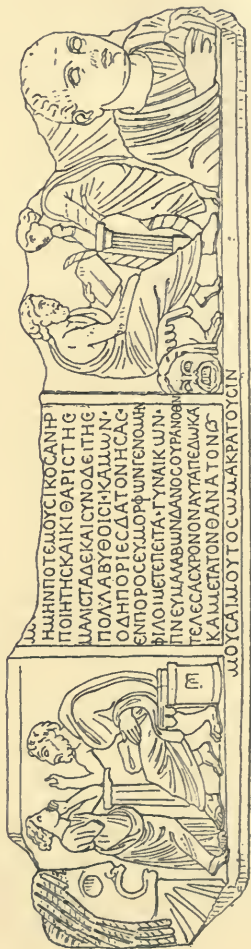 ΗΜΗΝΠΟΤΕΜΟΥϹΙΚΟϹΑΝΗΡ
ΠΟΙΗΤΗϹΚΑΙΚΙΘΑΡΙϹΤΗϹ
ΜΑΛΙϹΤΑΔΕΚΑΙϹΥΝΟΔΕΙΤΗϹ
ΠΟΛΛΑΒΥΘΟΙϹΙ·ΚΑΜΩΝ·
ΟΔΗΠΟΡΙΕϹΔΑΤΟΝΗϹΑϹ·
ΕΝΠΟΡΟϹΕΥΜΟΡΦΩΝΓΕΝΟΜΗΝ
ΦΙΛΟΙΜΕΤΕΠΕΙΤΑ·ΓΥΝΑΙΚΩΝ·
ΠΝΕΥΜΑΛΑΒΩΝΔΑΝΟϹΟΥΡΑΝΟΘΕΝ
ΤΕΛΕϹΑϹΧΡΟΝΟΝΑΥΤΑΠΕΔΩΚΑ
ΚΑΙΜΕΤΑΤΟΝΘΑΝΑΤΟΝ
ΜΟΥϹΑΙΜΟΥΤΟϹΩΜΑΚΡΑΤΟΥϹΙΝ